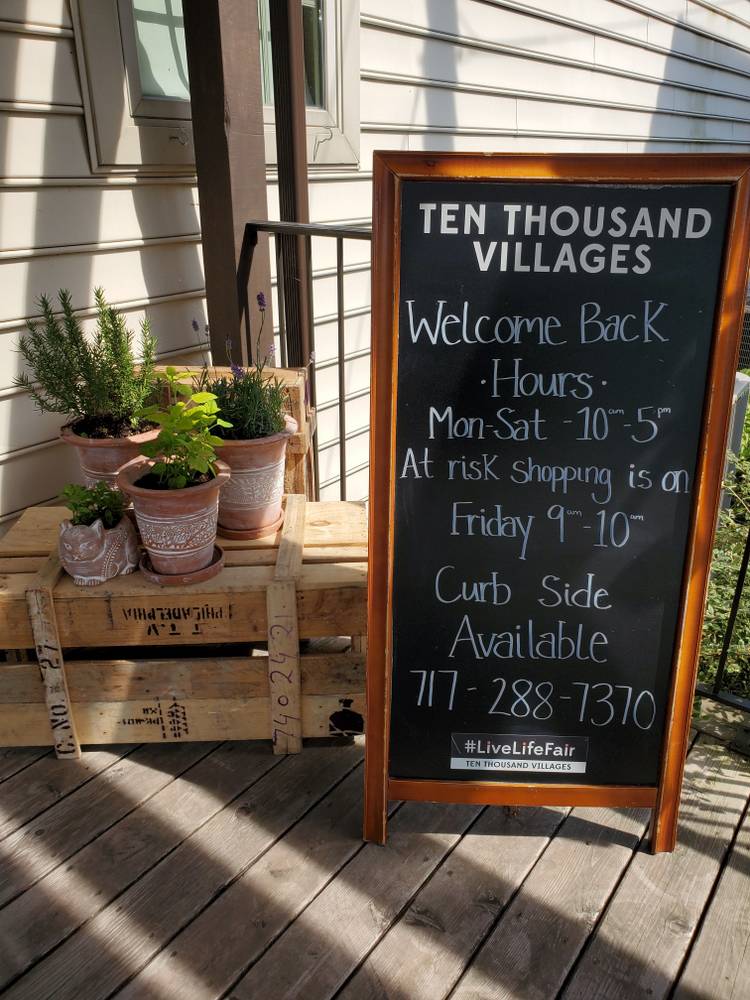 TEN THOUSAND
VILLAGES
Welcome Back
·Hours·
Mon-Sat -10am-5pm
At risk shopping is on
Friday 9am-10am
Curb Side
Available
717-288-7370
#LiveLifeFair
TEN THOUSAND VILLAGES
PHILADELPHIA
T.T.V
C. NO. 27
740242